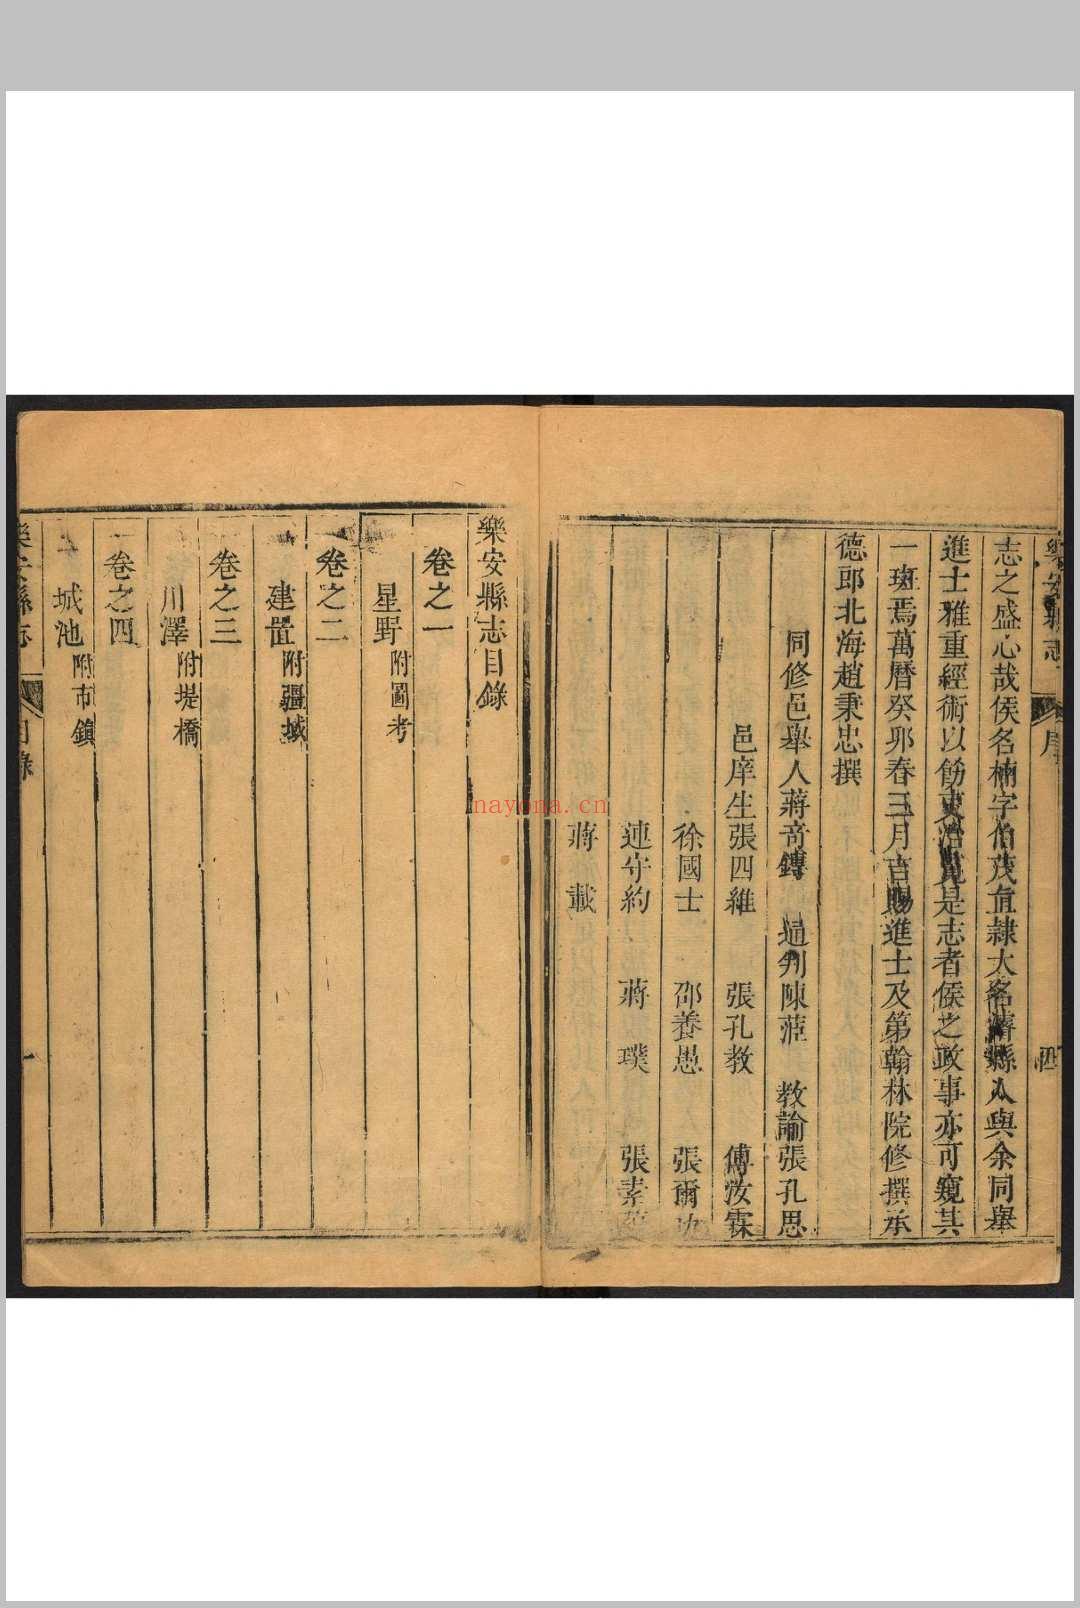 樂安縣志 序 四
志之盛心哉侯名楠字伯茂直隷大名濬縣人與余同舉
進士雅重經術以飭吏治覽是志者侯之政事亦可窺其
一斑焉萬曆癸卯春三月吉賜進士及第翰林院修撰承
德郎北海趙秉忠撰
同修邑舉人蔣奇鏄 通判陳蒞 教諭張孔思
邑庠生張四維 張孔教 傅汝霖
徐國士 邵養愚 張爾功
連守約 蔣璞 張素
蔣載
樂安縣志目錄
卷之一
星野 附圖考
卷之二
建置 附疆域
卷之三
川澤 附堤橋
卷之四
城池 附市鎮
樂安縣志 目錄 一
nayona.cn